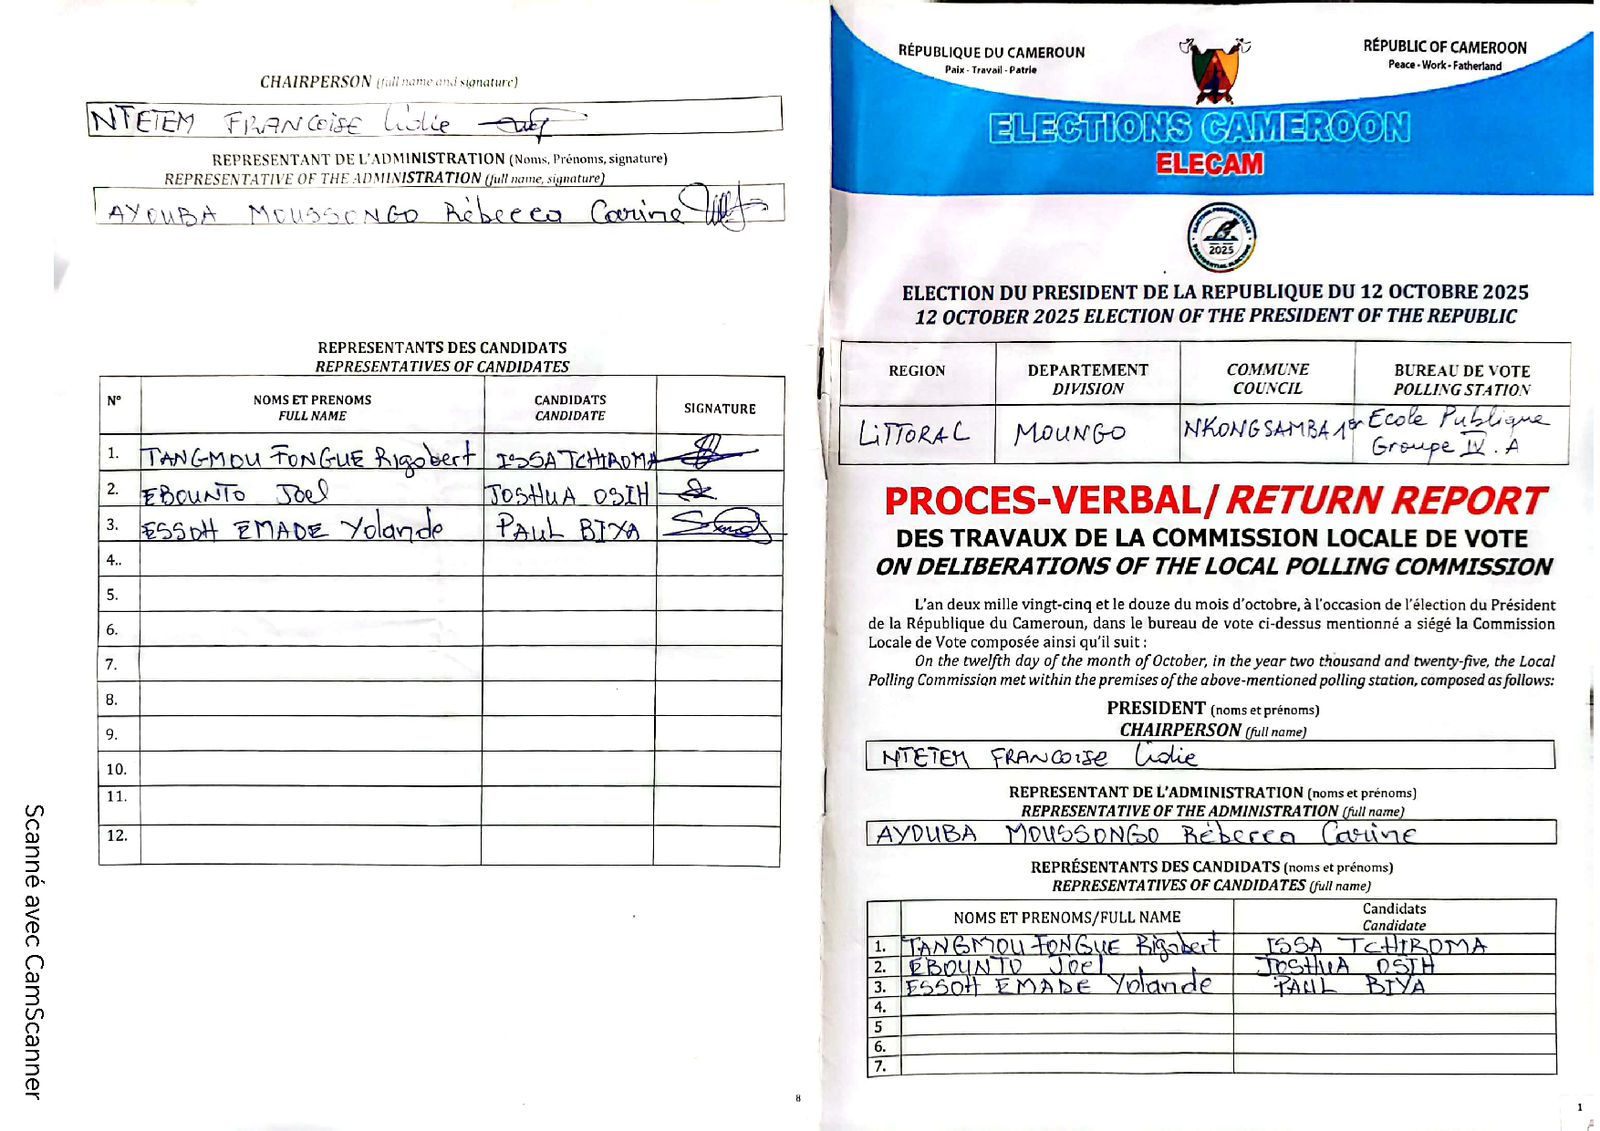 CHAIRPERSON (full name and signature)
NTETEM FRANCOISE Lidie
REPRESENTANT DE L'ADMINISTRATION (Noms, Prénoms, signature)
REPRESENTATIVE OF THE ADMINISTRATION (full name, signature)
AYOUBA MOUSSONGO Rébecca Carine
REPRESENTANTS DES CANDIDATS
REPRESENTATIVES OF CANDIDATES
N° NOMS ET PRENOMS FULL NAME CANDIDATS CANDIDATE SIGNATURE
1. TANGMOU FONGUE Rigobert ISSA TCHIROMA
2. EBOUNTO Joel JOSHUA OSIH
3. ESSOH EMADE Yolande PAUL BIYA
4..
5.
6.
7.
8.
9.
10.
11.
12.
8
Scanné avec CamScanner
RÉPUBLIQUE DU CAMEROUN
Paix - Travail - Patrie
RÉPUBLIC OF CAMEROON
Peace - Work - Fatherland
ELECTIONS CAMEROON
ELECAM
ELECTION PRESIDENTIELLE
2025
PRESIDENTIAL ELECTION
ELECTION DU PRESIDENT DE LA REPUBLIQUE DU 12 OCTOBRE 2025
12 OCTOBER 2025 ELECTION OF THE PRESIDENT OF THE REPUBLIC
REGION DEPARTEMENT DIVISION COMMUNE COUNCIL BUREAU DE VOTE POLLING STATION
LITTORAL MOUNGO NKONGSAMBA 1er Ecole Publique Groupe IV. A
PROCES-VERBAL/ RETURN REPORT
DES TRAVAUX DE LA COMMISSION LOCALE DE VOTE
ON DELIBERATIONS OF THE LOCAL POLLING COMMISSION
L'an deux mille vingt-cinq et le douze du mois d'octobre, à l'occasion de l'élection du Président
de la République du Cameroun, dans le bureau de vote ci-dessus mentionné a siégé la Commission
Locale de Vote composée ainsi qu'il suit :
On the twelfth day of the month of October, in the year two thousand and twenty-five, the Local
Polling Commission met within the premises of the above-mentioned polling station, composed as follows:
PRESIDENT (noms et prénoms)
CHAIRPERSON (full name)
NTETEM FRANCOISE Lidie
REPRESENTANT DE L'ADMINISTRATION (noms et prénoms)
REPRESENTATIVE OF THE ADMINISTRATION (full name)
AYOUBA MOUSSONGO Rébecca Carine
REPRÉSENTANTS DES CANDIDATS (noms et prénoms)
REPRESENTATIVES OF CANDIDATES (full name)
NOMS ET PRENOMS/FULL NAME Candidats Candidate
1. TANGMOU FONGUE Rigobert ISSA TCHIROMA
2. EBOUNTO Joel JOSHUA OSIH
3. ESSOH EMADE Yolande PAUL BIYA
4.
5
6.
7.
1